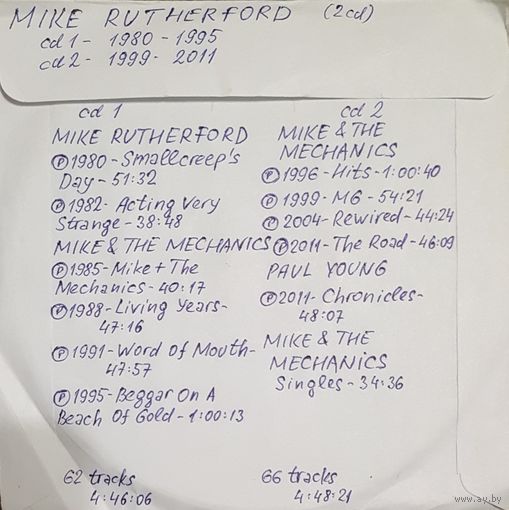 MIKE RUTHERFORD (2cd)
cd 1 - 1980 - 1995
cd 2 - 1999 - 2011
cd 1
MIKE RUTHERFORD
Ⓟ1980 - Smallcreep's
Day - 51:32
Ⓟ1982 - Acting Very
Strange - 38:48
MIKE & THE MECHANICS
Ⓟ1985 - Mike + The
Mechanics - 40:17
Ⓟ1988 - Living Years -
47:16
Ⓟ1991 - Word Of Mouth -
47:57
Ⓟ1995 - Beggar On A
Beach Of Gold - 1:00:13
62 tracks
4:46:06
cd 2
MIKE & THE
MECHANICS
Ⓟ1996 - Hits - 1:00:40
Ⓟ1999 - M6 - 54:21
Ⓟ2004 - Rewired - 44:24
Ⓟ2011 - The Road - 46:09
PAUL YOUNG
Ⓟ2011 - Chronicles -
48:07
MIKE & THE
MECHANICS
Singles - 34:36
66 tracks
4:48:21
www.ay.by